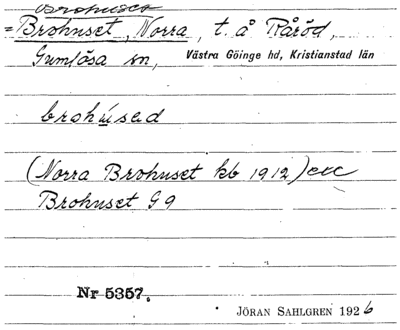 Brohuset
=Brohuset, Norra, t. å Råröd,
Gumlösa sn, Västra Göinge hd, Kristianstad län
brohúsed
(Norra Brohuset kb 1912) etc
Brohuset G 9
Nr 5357.
JÖRAN SAHLGREN 1926